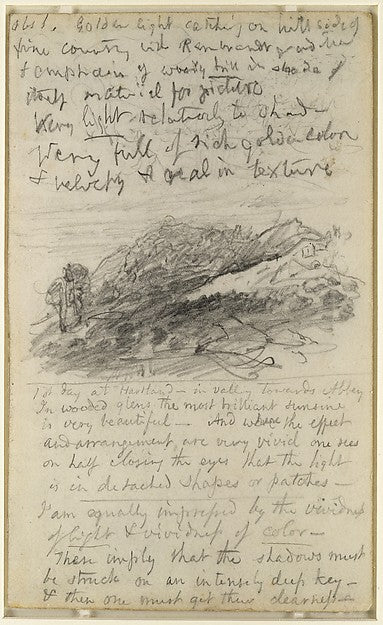 obs 1. Golden light catching on hill side of
fine country with Rembrandt
& emphasis of woody hill in shade /
material for picture
Very light relatively to shad
Very full of rich golden color
& velvety & real in texture
1st day at Hartland — in valley towards Abbey
In wooded glens the most brilliant sunshine
is very beautiful — And where the effect
and arrangement are very vivid one sees
on half closing the eyes that the light
is in detached shapes or patches —
I am equally impressed by the vividness
of light & vividness of color —
These imply that the shadows must
be struck on an intensely deep key —
& then one must get their clearness